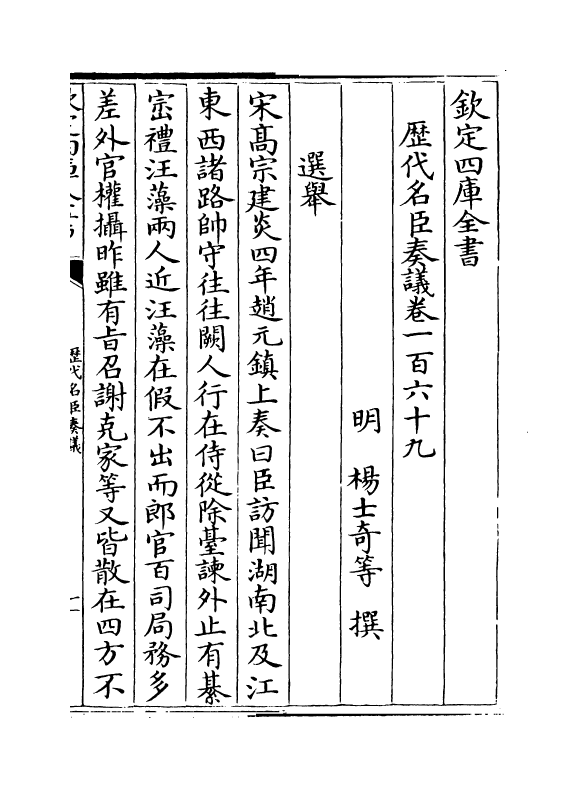 欽定四庫全書
歴代名臣奏議卷一百六十九
明　楊士奇等　撰
選舉
宋髙宗建炎四年趙元鎮上奏曰臣訪聞湖南北及江
東西諸路帥守往往闕人行在侍從除臺諫外止有綦
崈禮汪藻兩人近汪藻在假不出而郎官百司局務多
差外官權攝昨雖有㫖召謝克家等又皆散在四方不
歴代名臣奏議